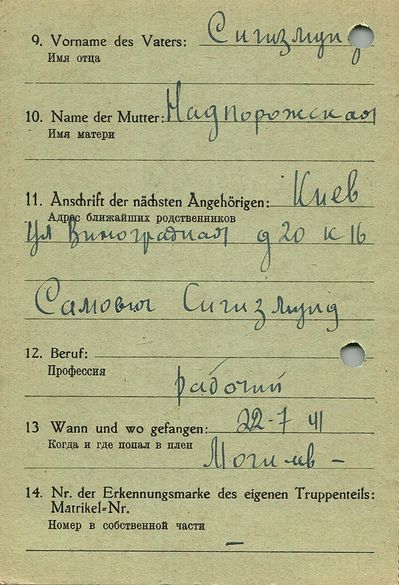 9. Vorname des Vaters: Сигизмунд
Имя отца
10. Name der Mutter: Надпорожская
Имя матери
11. Anschrift der nächsten Angehörigen: Киев
Адрес ближайших родственников
Ул Виноградная д 20 к 16
Самович Сигизмунд
12. Beruf:
Профессия
рабочий
13 Wann und wo gefangen: 22-7 41
Когда и где попал в плен
Могилев –
14. Nr. der Erkennungsmarke des eigenen Truppenteils:
Matrikel-Nr.
Номер в собственной части
–